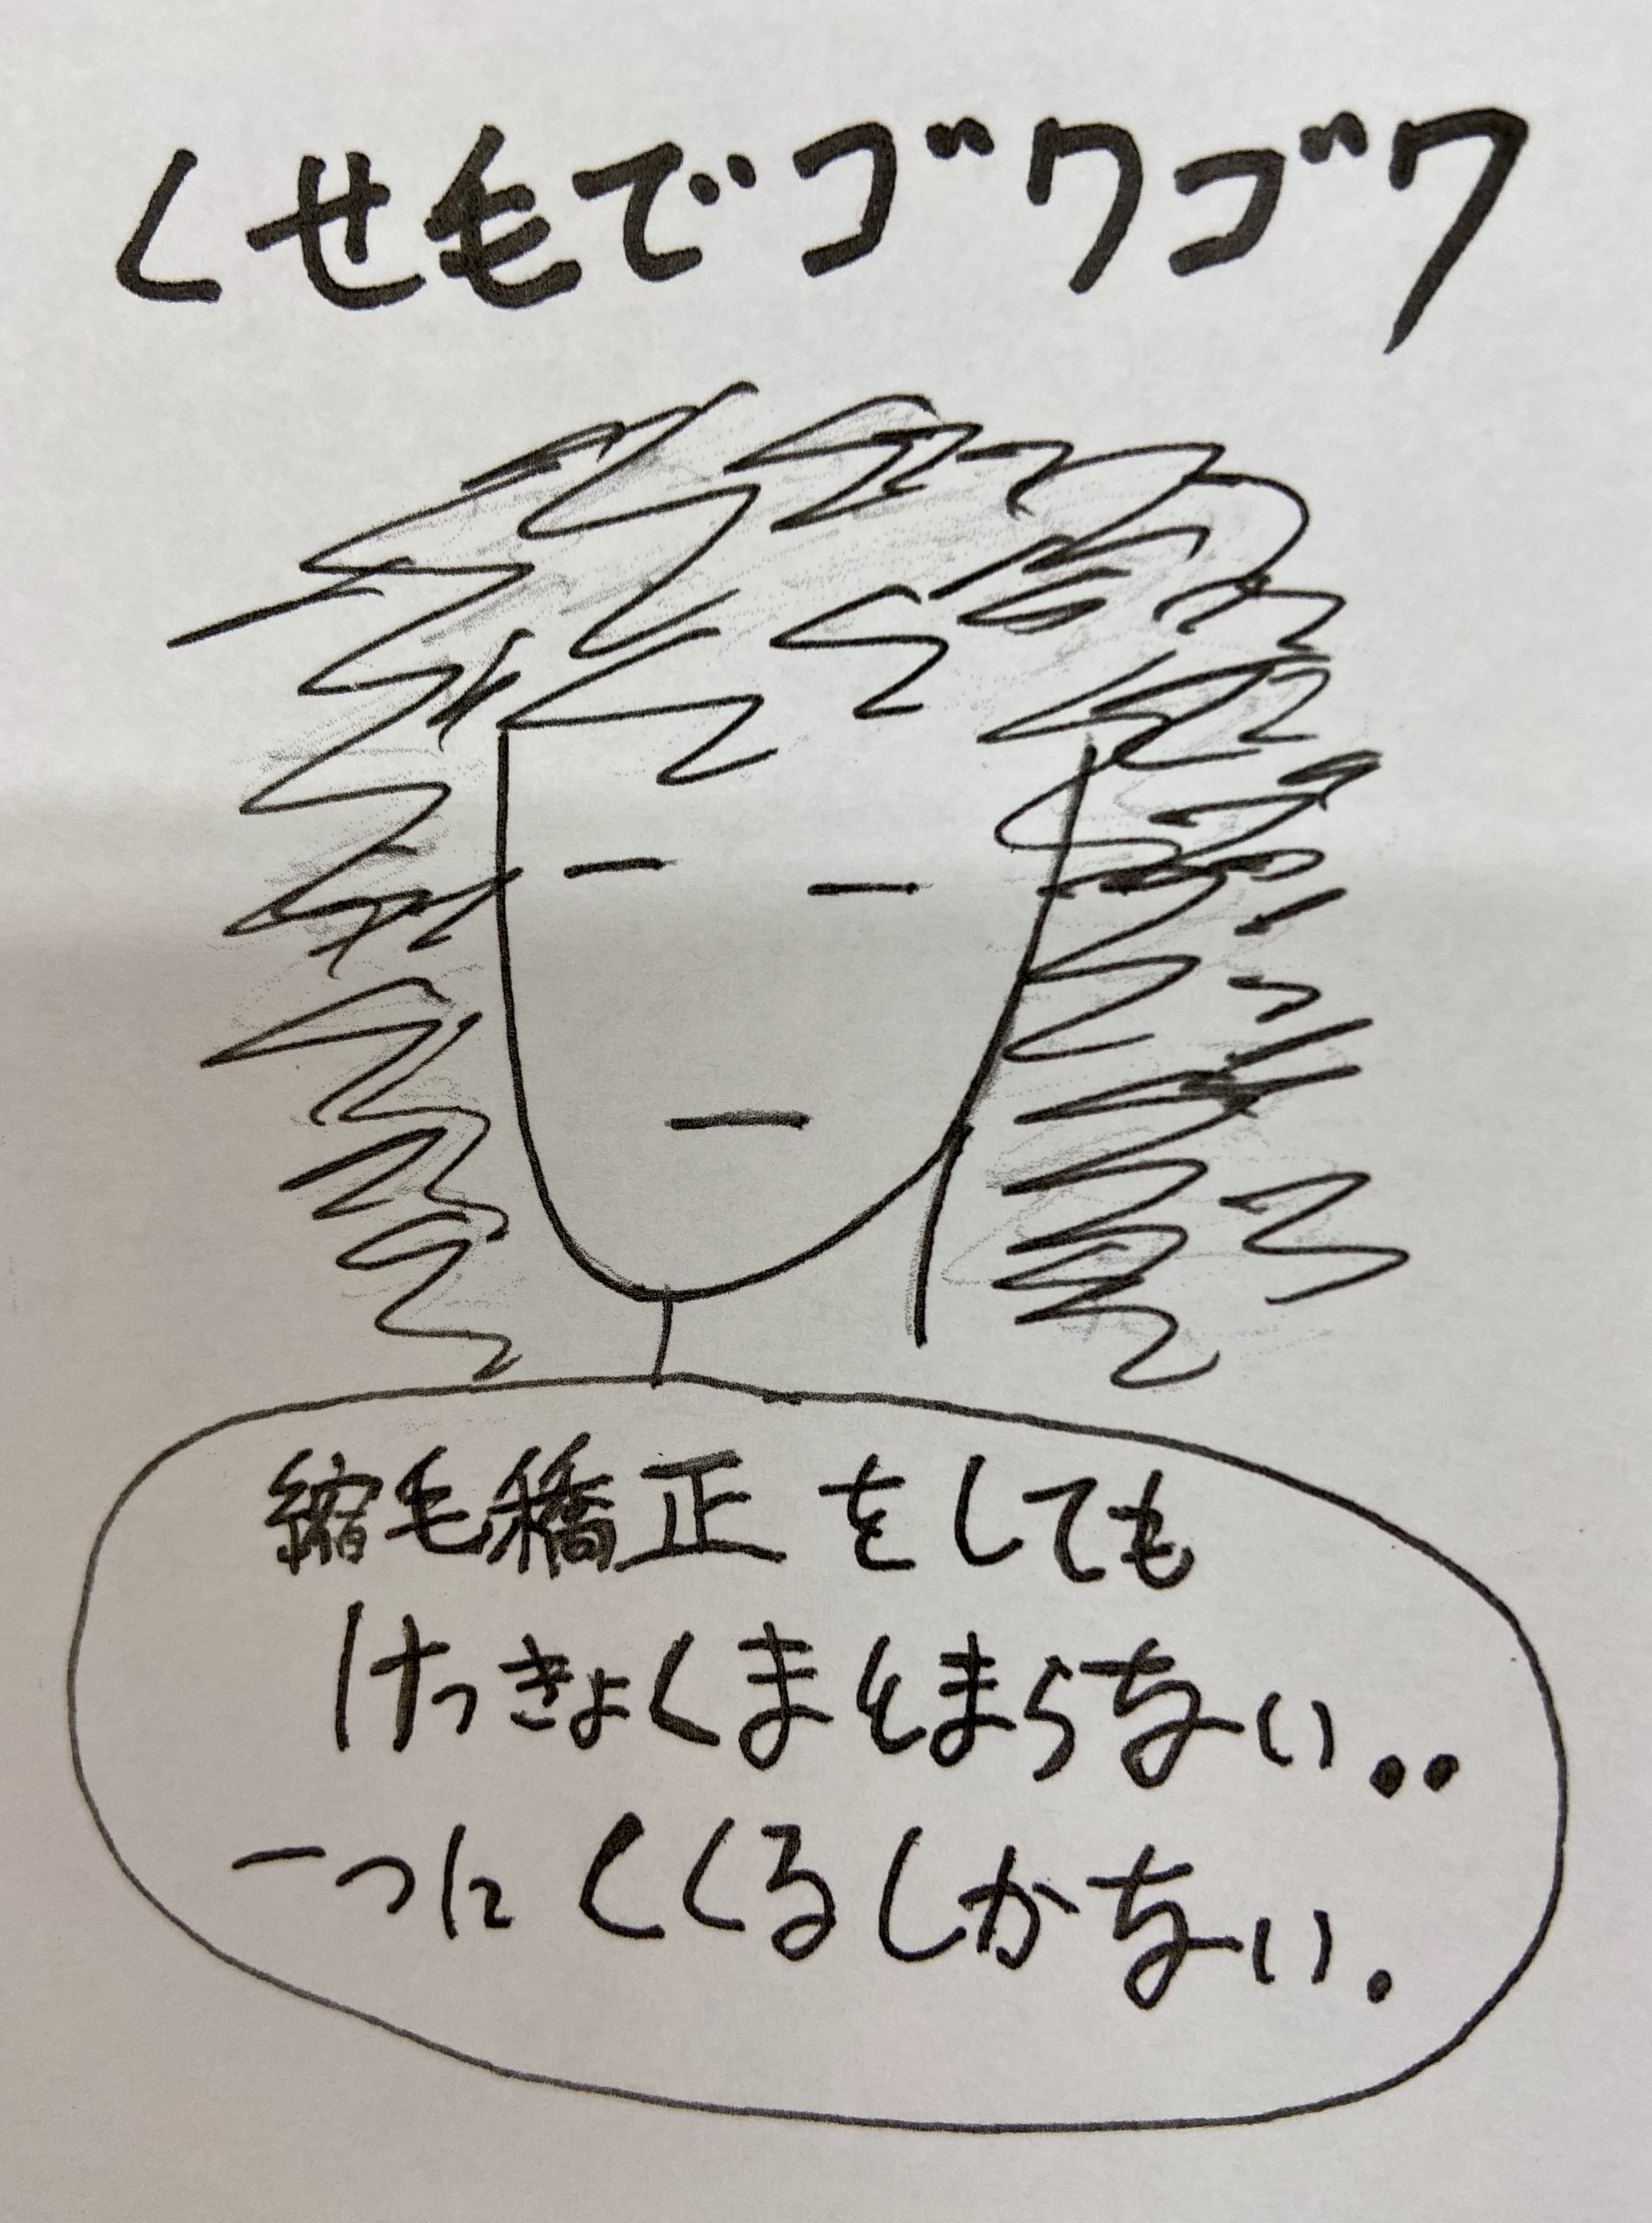 くせ毛でゴワゴワ
縮毛矯正をしても
けっきょくまとまらない..
一つにくくるしかない.